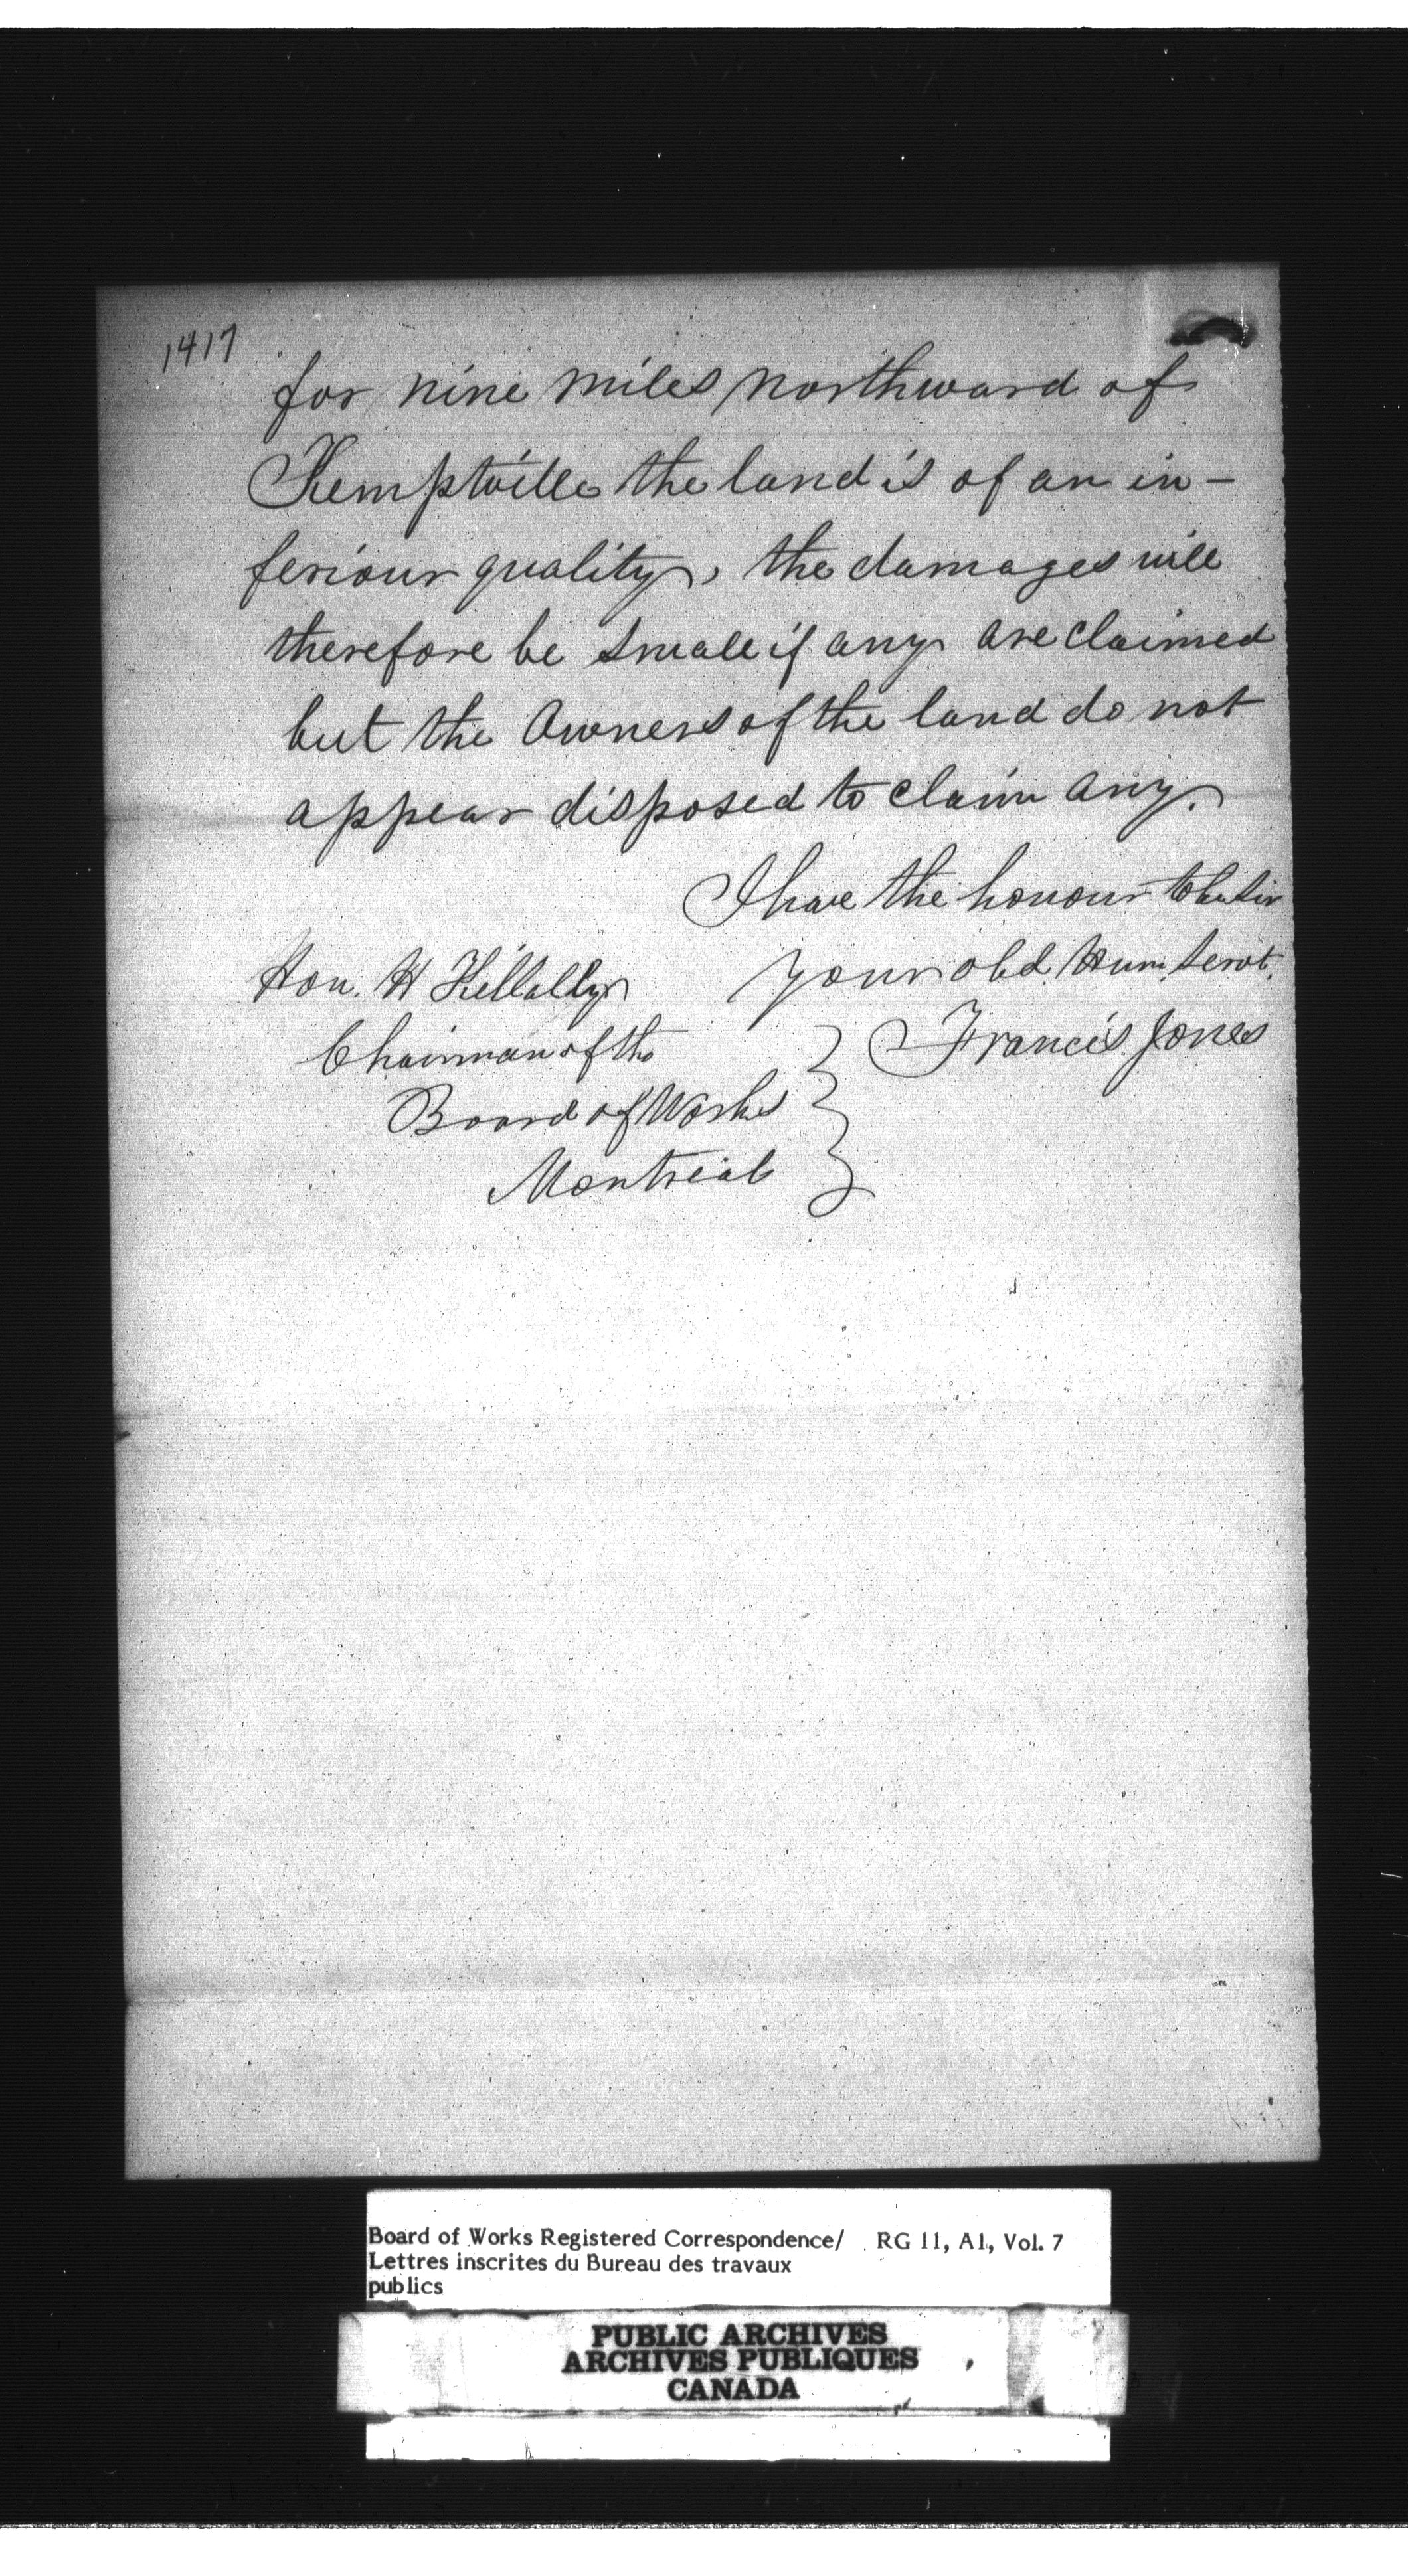 1417
for nine miles northward of
Kemptville the land is of an in-
feriour quality, the damages will
therefore be small if any are claimed
but the Owners of the land do not
appear disposed to claim any.
I have the honour to be Sir
Your obd. Hum. Servt.
Francis Jones
Hon. H Killally
Chairman of the
Board of Works
Montreal
Board of Works Registered Correspondence/ RG 11, A1, Vol. 7
Lettres inscrites du Bureau des travaux
publics
PUBLIC ARCHIVES
ARCHIVES PUBLIQUES
CANADA